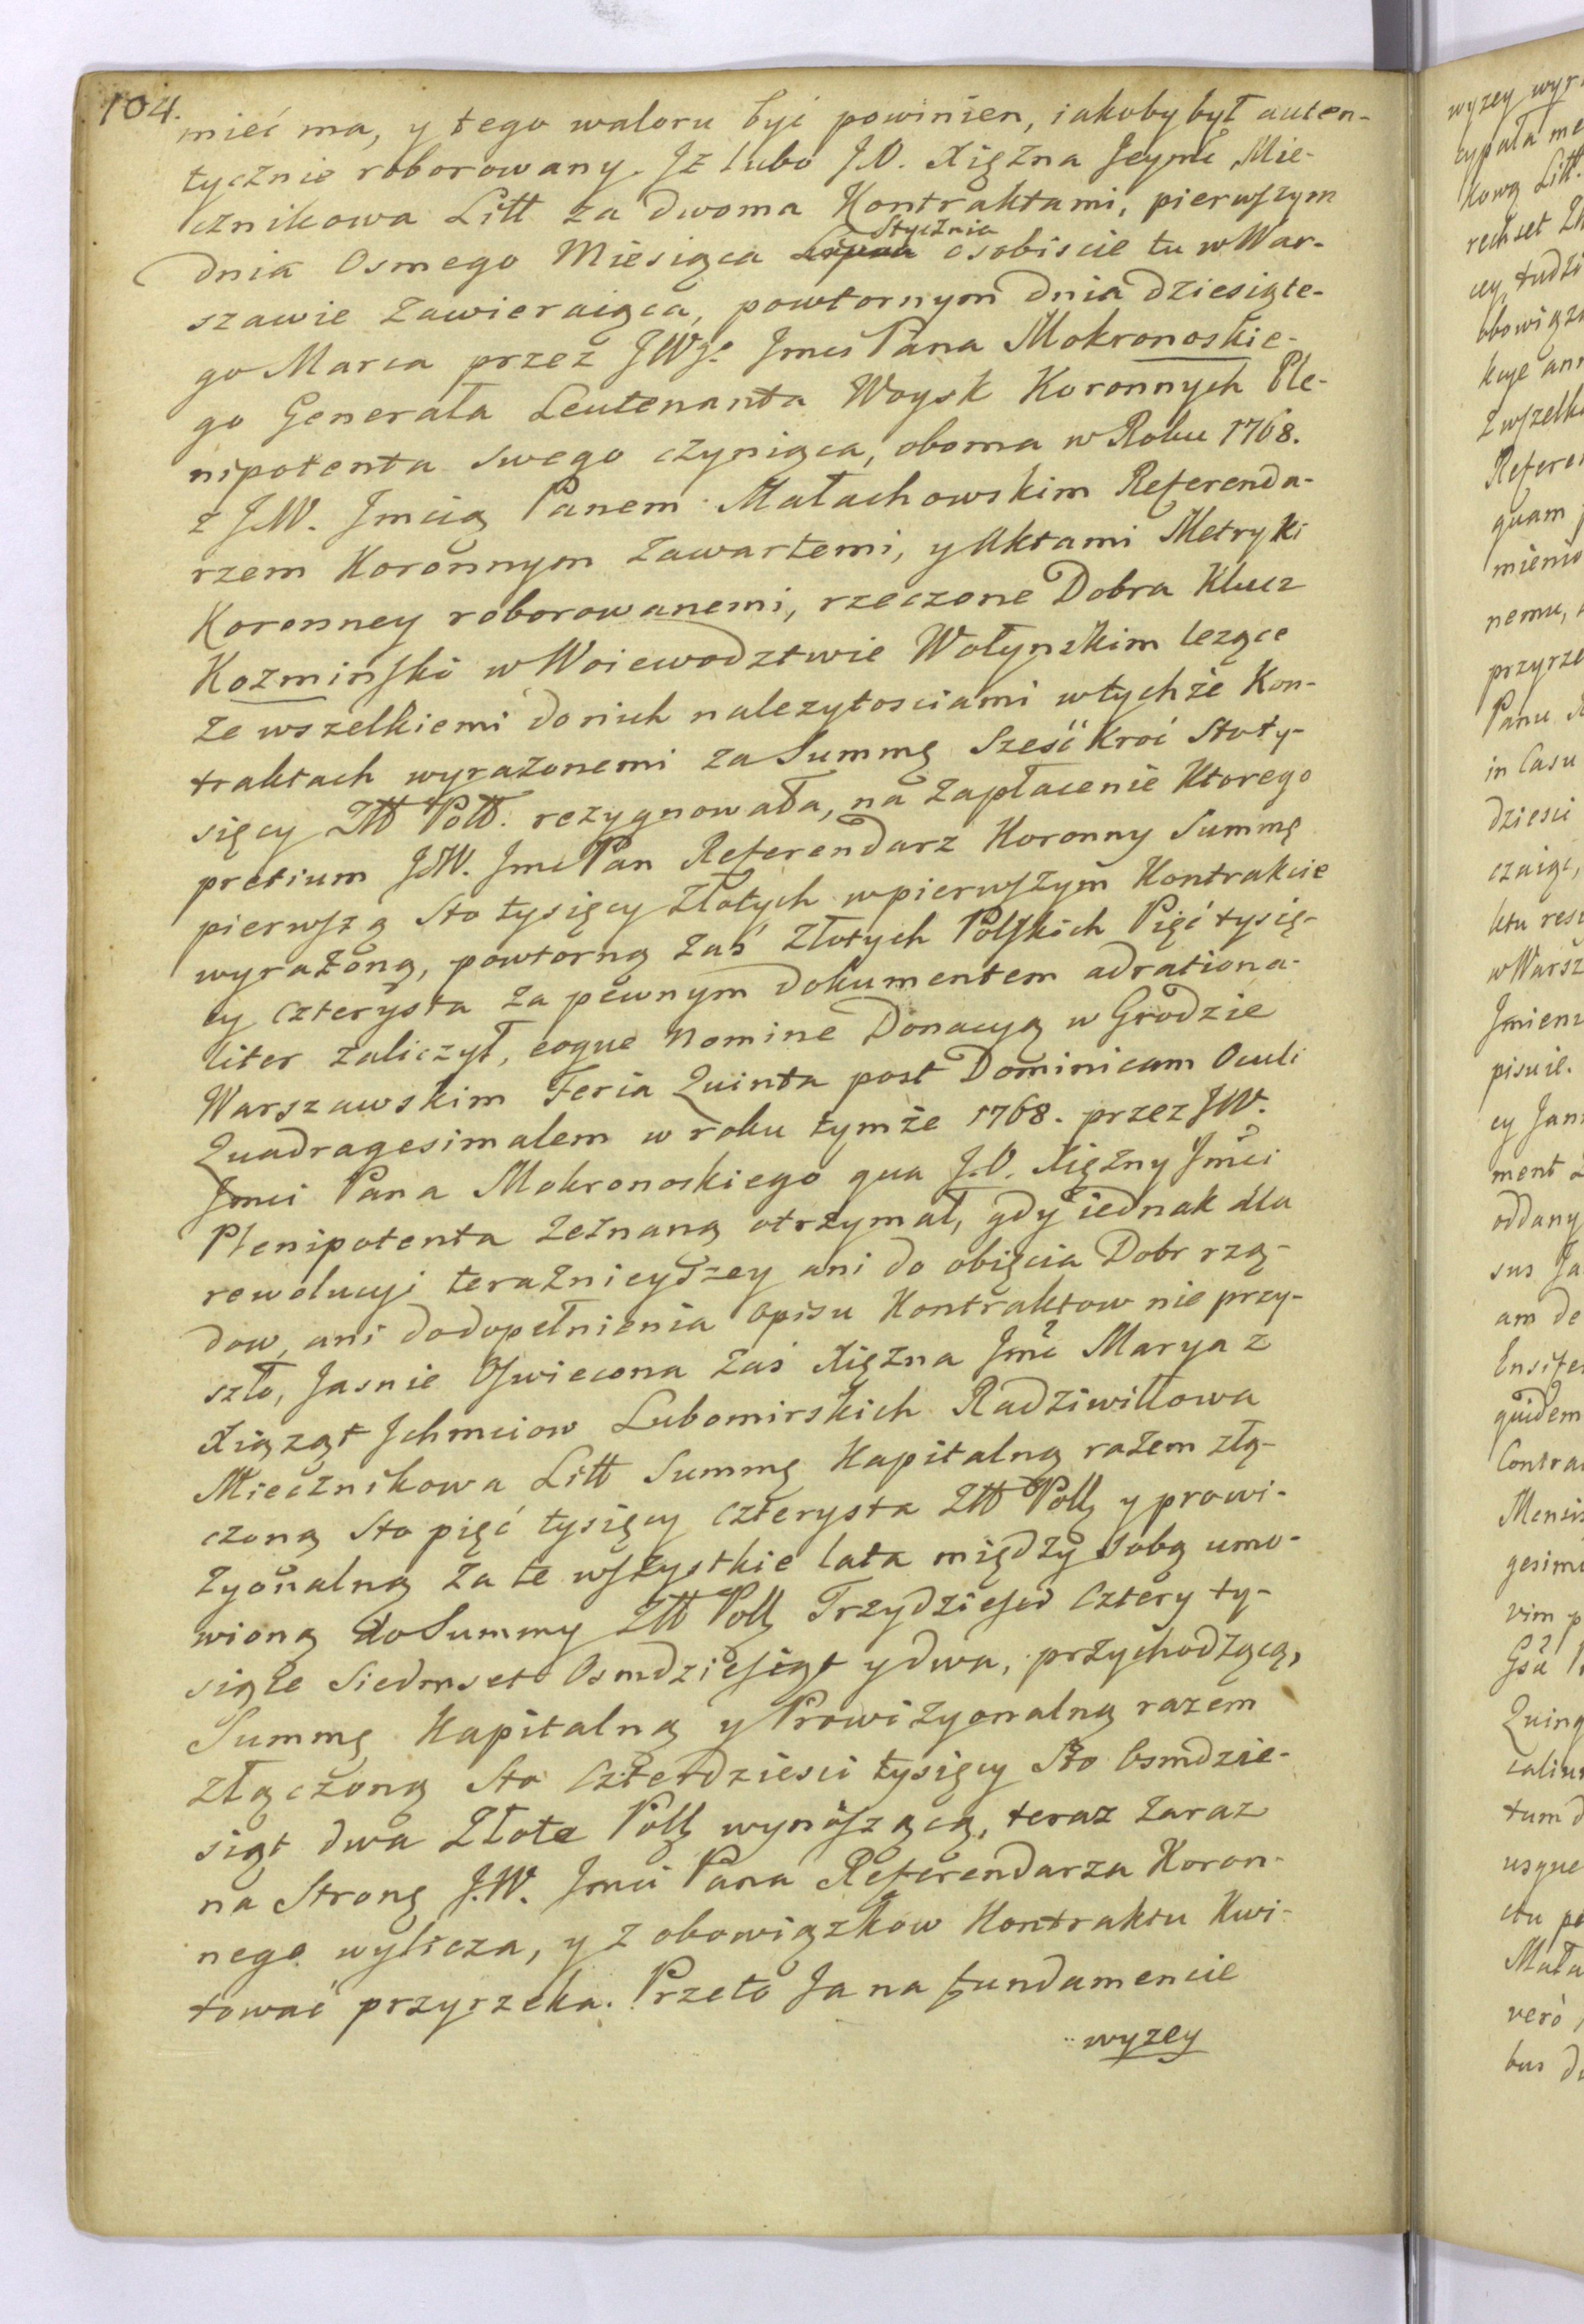 104.
mieć ma, y tego waloru być powinien, iakoby był auten-
tycznie roborowany. Jż lubo J.O. Xiężna Jeymć Mie-
cznikowa Litt za dwoma Kontraktami, pierwszym
Stycznia
dnia Osmego Miesiąca Lipca osobiscie tu w War-
szawie zawieraiąca, powtornym dnia dziesiąte-
go Marca przez JWgo Jmci Pana Mokronoskie-
go Generała Leutenanta Woysk Koronnych Ple-
nipotenta swego czyniąca, oboma w Roku 1768.
z J.W. Jmcią Panem Małachowskim Referenda-
rzem Koronnym zawartemi, y Aktami Metryki
Koronney roborowanemi, rzeczone Dobra Klucz
Kozminski w Woiewodztwie Wołynskim lezące
ze wszelkiemi do nich nalezytosciami w tychże Kon-
traktach wyrażonemi za Summę Sześć kroć Stoty-
sięcy Złł Poll. rezygnowała, na zapłacenie Ktorego
pretium J.W. Jmć Pan Referendarz Koronny Summę
pierwszą Sto tysięcy Złotych w pierwszym Kontrakcie
wyrażoną, powtorną zaś Złotych Polskich Pięć tysię-
cy czterysta za pewnym dokumentem adrationa-
liter zaliczył, eoque nomine Donacyą w Grodzie
Warszawskim Feria Quinta post Dominicam Oculi
Quadragesimalem w roku tymże 1768. przez JW.
Jmci Pana Mokronoskiego qua J.O. Xiężny Jmci
Plenipotenta zeznaną otrzymał, gdy iednak dla
rewolucyi teraznieyszey ani do obięcia Dobr rzą-
dow, ani do dopełnienia opisu Kontraktow nie przy-
szło, Jasnie Oswiecona zaś Xiężna Jmć Marya z
Xiążąt Jchmciow Lubomirskich Radziwiłłowa
Miecznikowa Litt Summę Kapitalną razem złą-
czoną Sto pięć tysięcy czterysta Złł Poll y prowi-
zyonalną za te wszystkie lata między sobą umo-
wioną do Summy Złł Poll Trzydziesci cztery ty-
siące Siedmset Osmdziesiąt y dwa, przychodzącą,
Summę Kapitalną y Prowizyonalną razem
złączoną Sto Czterdziesci tysięcy Sto Osmdzie-
siąt dwa Złote Poll wynoszącą, teraz zaraz
na Stronę J.W. Jmci Pana Referendarza Koron-
nego wylicza, y z obowiązkow Kontraktu Kwi-
tować przyrzeka. Przeto Ja na fundamencie
wyzey